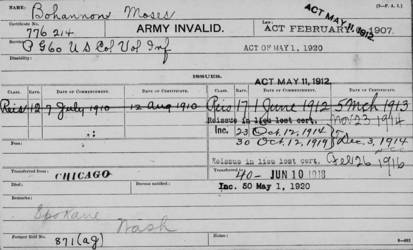 Name: Bohannon Moses (3-F. A. I.)
ACT MAY 11, 1912.
Certificate No. Law:
776 214 ARMY INVALID. ACT FEBRUARY 6, 1907.
Service:
P G 60 U S Col Vol Inf ACT OF MAY 1, 1920
Disability:
ISSUES.
ACT MAY 11, 1912.
CLASS. RATE. DATE OF COMMENCEMENT. DATE OF CERTIFICATE. CLASS. RATE. DATE OF COMMENCEMENT. DATE OF CERTIFICATE.
Reis 12 7 July 1910 12 Aug 1910 Reis 17 1 June 1912 5 Mch 1913
Reissue in lieu lost cert. Nov 23 1914
Inc. 23 Oct. 12, 1914
From: 30 Oct. 12, 1919 Dec. 3, 1914
Reissue in lieu lost cert. Feb 26 1916
Transferred from: Transferred from:
CHICAGO 40- JUN 10 1918
Died: Bureau notified: Inc. 50 May 1, 1920
Remarks:
Spokane
Wash
Former Roll No.
871 (ag)